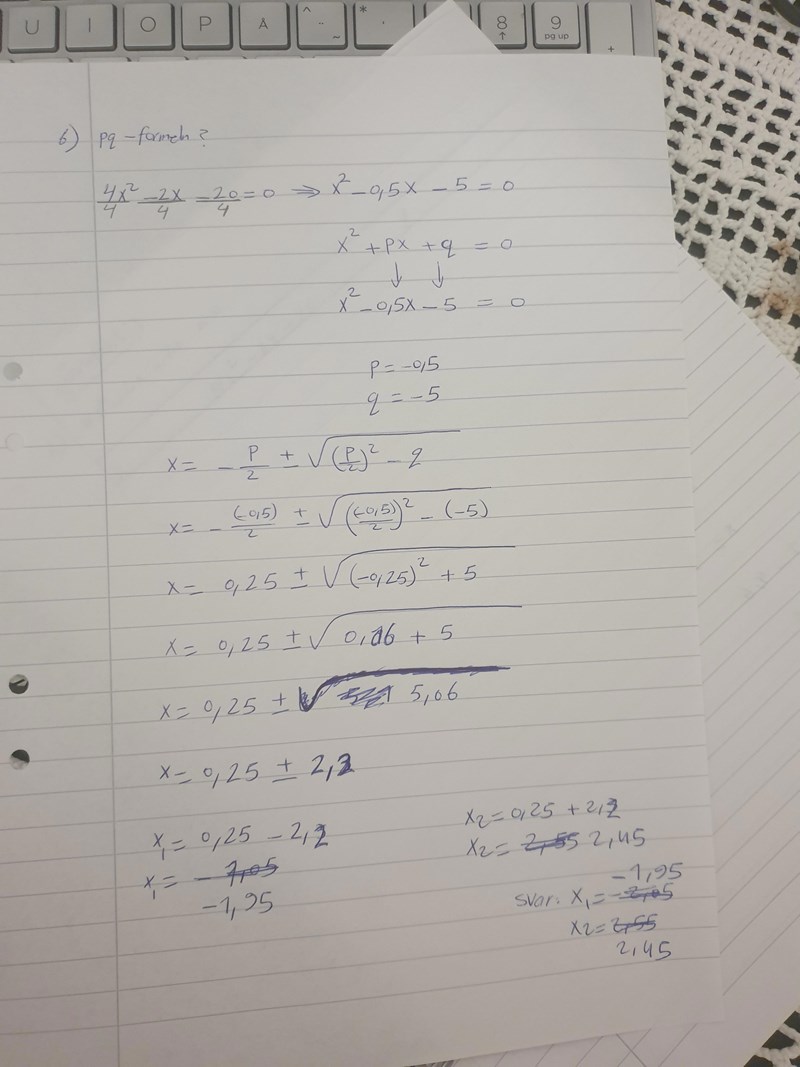 U I O P Å ^ ¨ ~ * ' 8 ↑ 9 pg up +
6) pq-formeln?
4x²/4 - 2x/4 - 20/4 = 0 ⇒ x² - 0,5x - 5 = 0
x² + px + q = 0
↓ ↓
x² - 0,5x - 5 = 0
p = -0,5
q = -5
x = - p/2 ± √((p/2)² - q)
x = - (-0,5)/2 ± √(((-0,5)/2)² - (-5))
x = 0,25 ± √((-0,25)² + 5)
x = 0,25 ± √(0,06 + 5)
x = 0,25 ± √5,06
x = 0,25 ± 2,2
x₁ = 0,25 - 2,2
x₁ =
-1,95
x₂ = 0,25 + 2,2
x₂ = 2,55 2,45
-1,95
svar: x₁ = -2,05
x₂ = 2,55
2,45